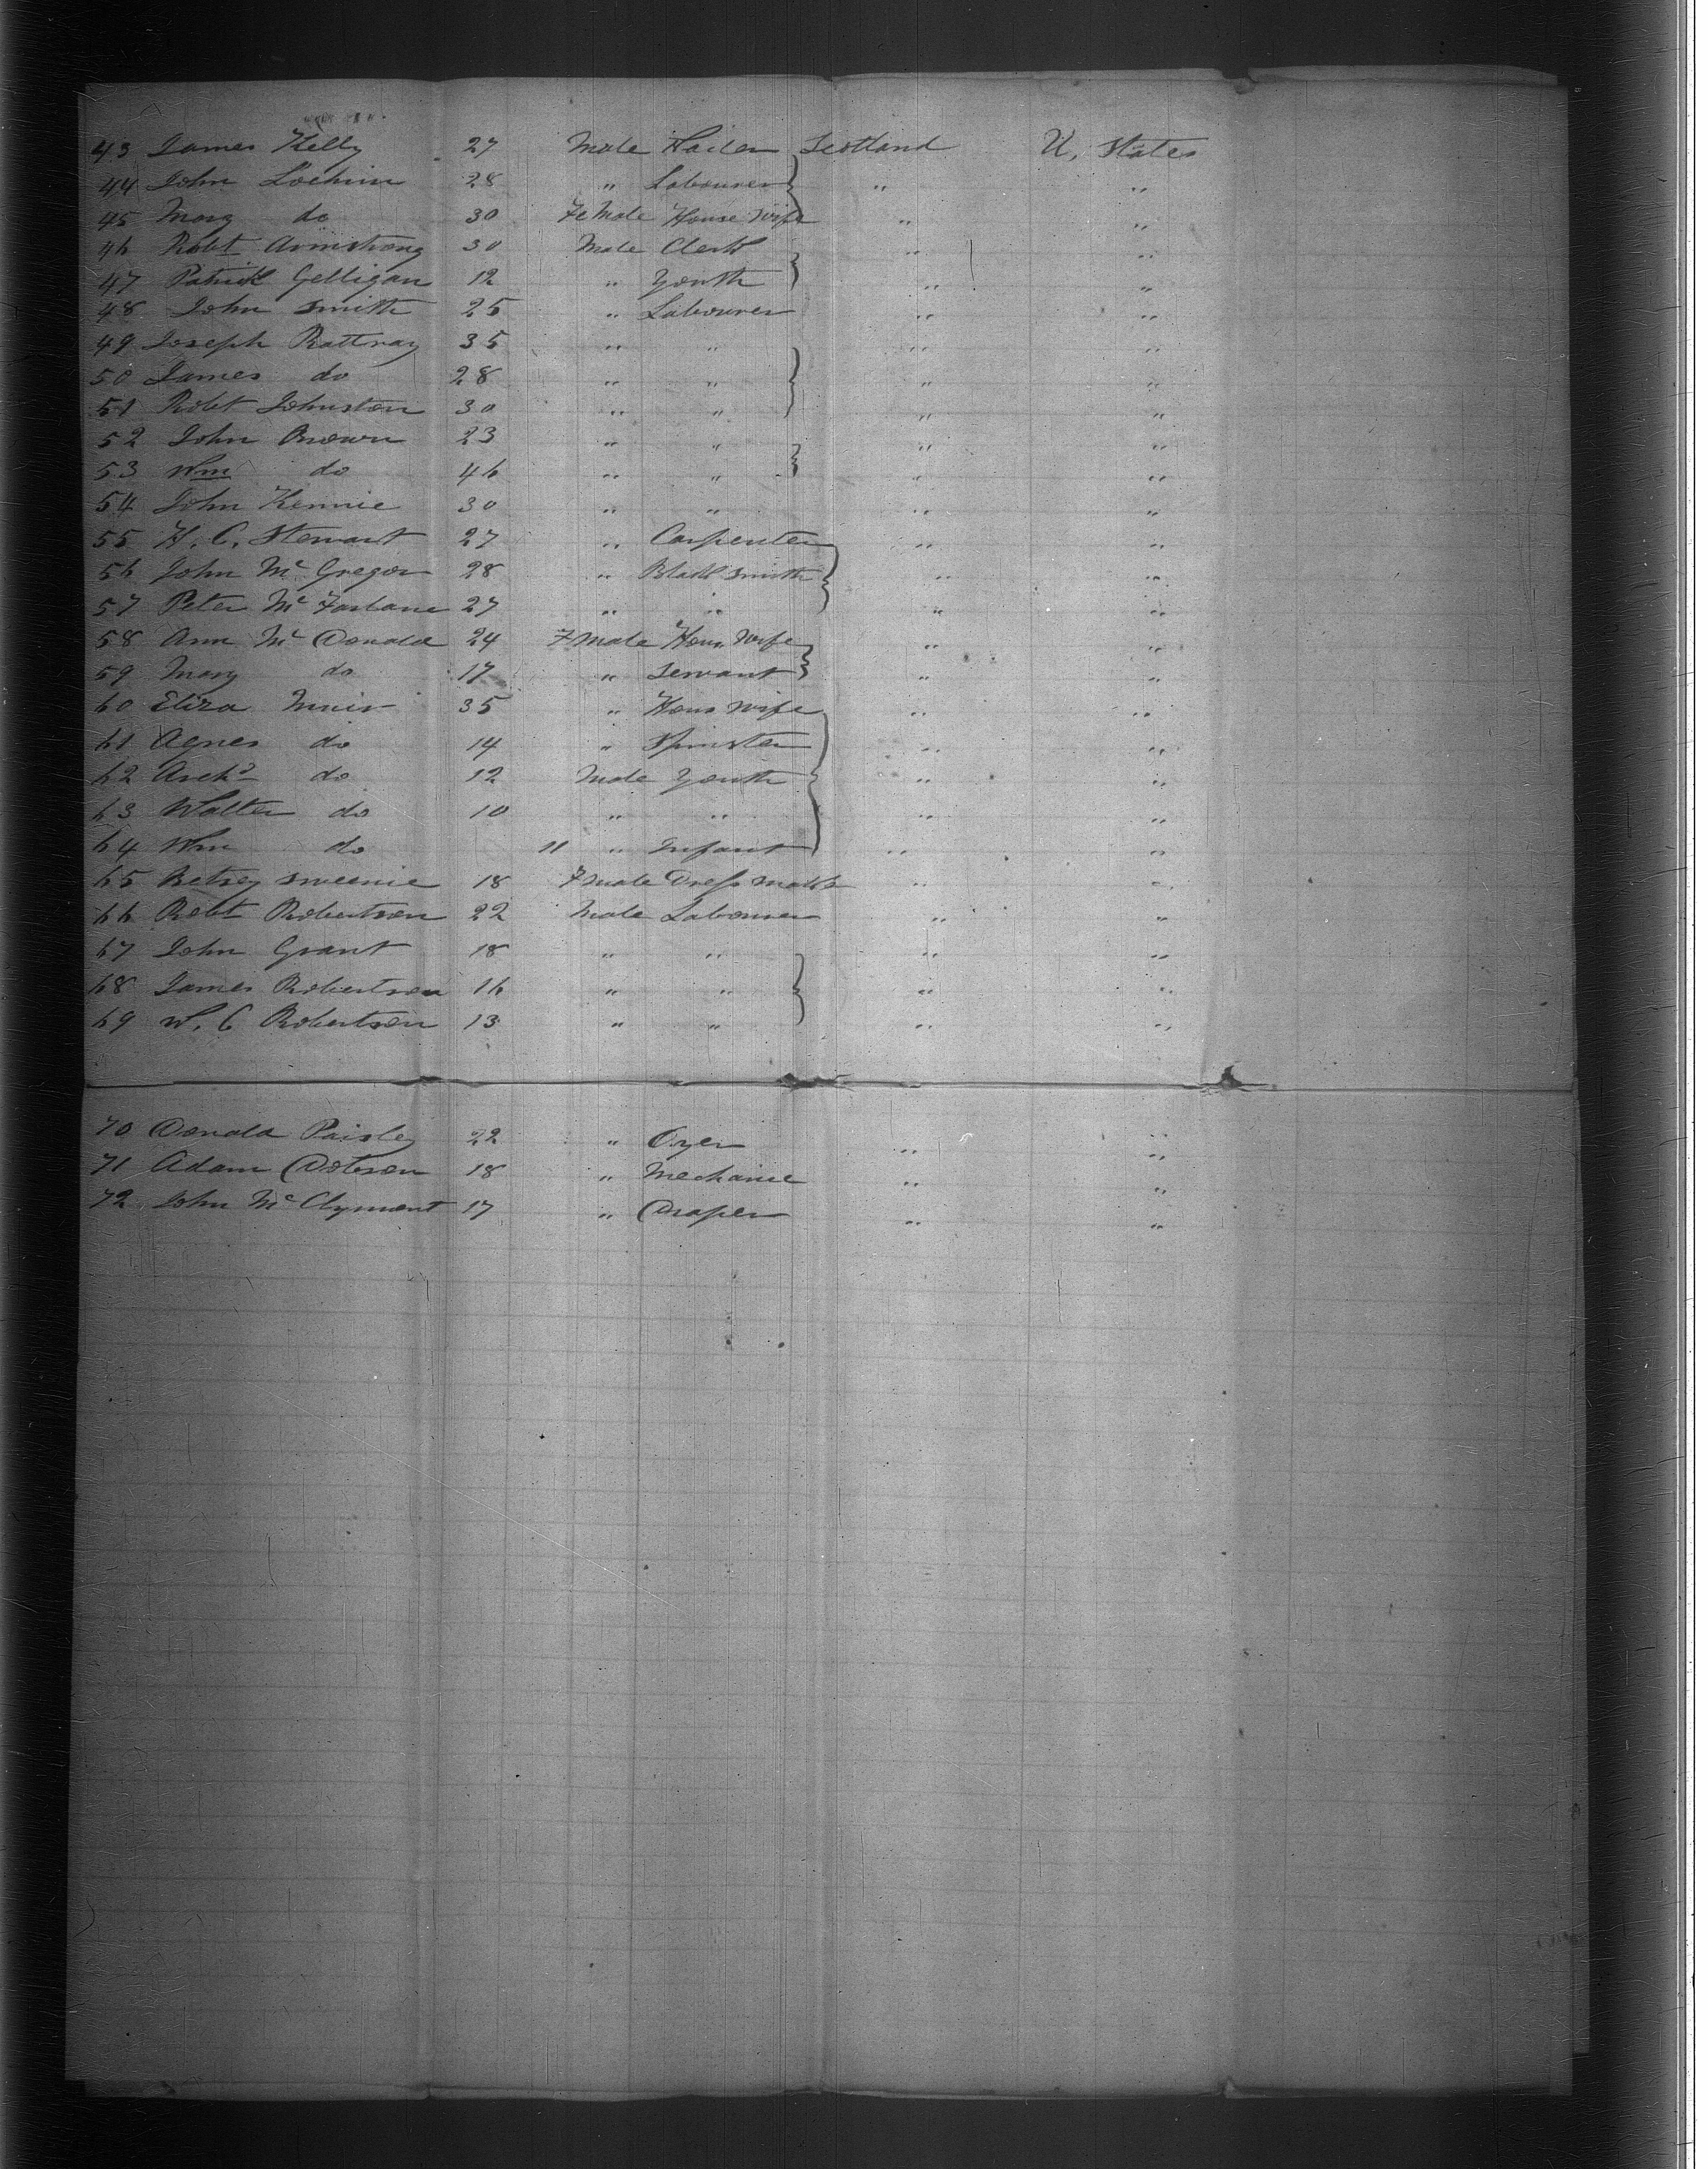 43 James Kelly 27 Male Scotland U, States
44 John Lochrin 28 " Labourer " "
45 Mary do 30 Female House Wife " "
46 Robt Armstrong 30 Male Clerk " "
47 Patrick Gelligan 12 " Youth " "
48 John Smith 25 " Labourer " "
49 Joseph Rattray 35 " " " "
50 James do 28 " " " "
51 Robt Johnston 30 " " " "
52 John Brown 23 " " " "
53 Wm do 46 " " " "
54 John Kennie 30 " " " "
55 H. C. Stewart 27 " Carpenter " "
56 John Mc Gregor 28 " Blak Smith " "
57 Peter Mc Farlane 27 " " " "
58 Ann Mc Donald 24 Fmale Hous Wife " "
59 Mary do 17 " Servant " "
60 Eliza Muir 35 " Hous Wife " "
61 Agnes do 14 " Spinster " "
62 Archd do 12 Male Youth " "
63 Walter do 10 " " " "
64 Wm do 11 " Infant " "
65 Betsey Sweenie 18 Fmale Dress " "
66 Robt Robertson 22 Male Labourer " "
67 John Grant 18 " " " "
68 James Robertson 16 " " " "
69 W. C Robertson 13 " " " "
70 Donald Paisley 22 " " "
71 Adam Dobson 18 " Mechanic " "
72 John Mc Clymont 17 " Draper " "